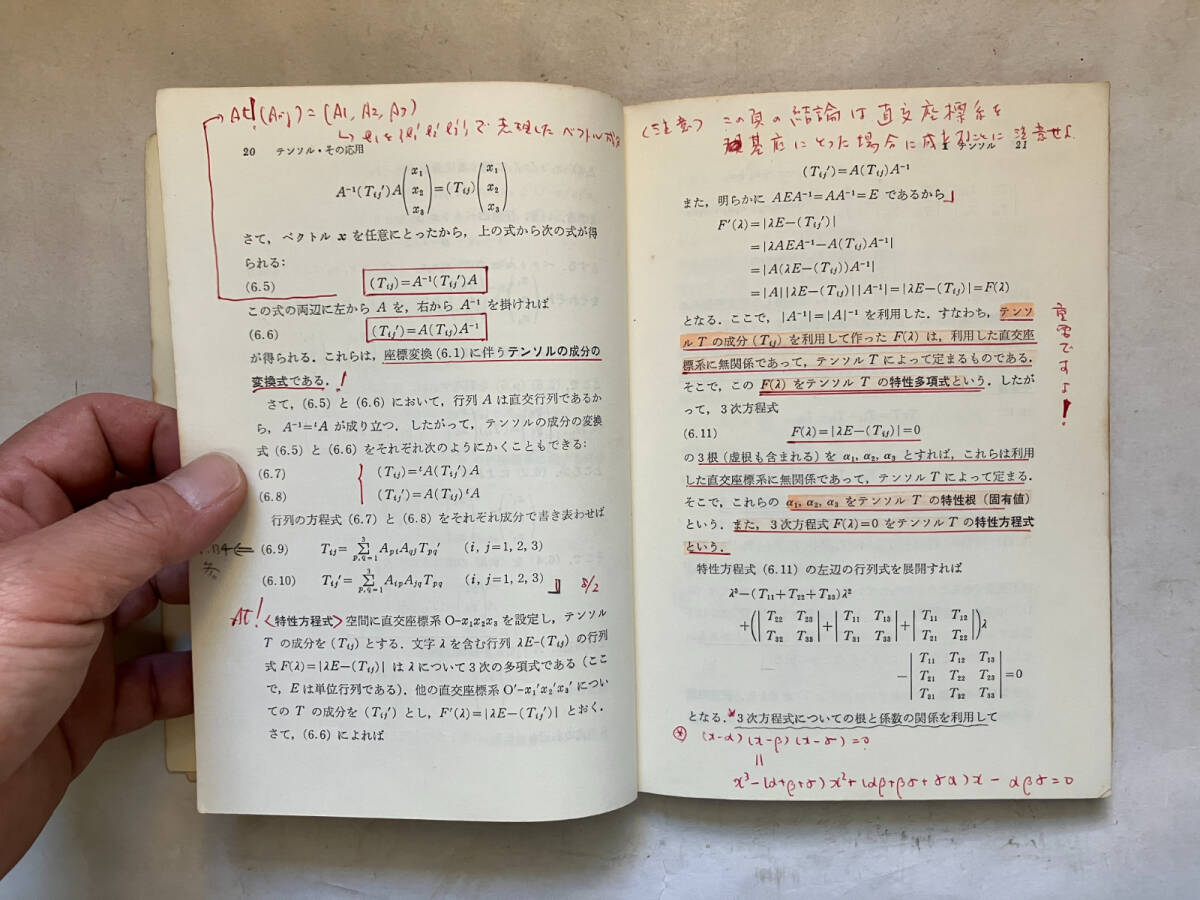 At! (Aij) = (A1, A2, A3)
20 テンソル・その応用
A⁻¹(Tij′)A(x₁ x₂ x₃)=(Tij)(x₁ x₂ x₃)
さて，ベクトル x を任意にとったから，上の式から次の式が得
られる：
(6.5) (Tij)=A⁻¹(Tij′)A
この式の両辺に左から A を，右から A⁻¹ を掛ければ
(6.6) (Tij′)=A(Tij)A⁻¹
が得られる．これらは，座標変換 (6.1) に伴うテンソルの成分の
変換式である．!
さて，(6.5) と (6.6) において，行列 A は直交行列であるか
ら，A⁻¹=ᵗA が成り立つ．したがって，テンソルの成分の変換
式 (6.5) と (6.6) をそれぞれ次のようにかくこともできる：
(6.7) (Tij)=ᵗA(Tij′)A
(6.8) (Tij′)=A(Tij)ᵗA
行列の方程式 (6.7) と (6.8) をそれぞれ成分で書き表わせば
(6.9) Tij=Σ³p,q=1 ApiAqjTpq′ (i, j=1, 2, 3)
(6.10) Tij′=Σ³p,q=1 AipAjqTpq (i, j=1, 2, 3) 8/2
At! 〈特性方程式〉 空間に直交座標系 O−x₁x₂x₃ を設定し，テンソル
T の成分を (Tij) とする．文字 λ を含む行列 λE−(Tij) の行列
式 F(λ)=|λE−(Tij)| は λ について3次の多項式である（ここ
で，E は単位行列である）．他の直交座標系 O′−x₁′x₂′x₃′ につい
ての T の成分を (Tij′) とし，F′(λ)=|λE−(Tij′)| とおく．
さて，(6.6) によれば
(注意) この頁の結論は直交座標系を
基底にとった場合に成り立つことに注意せよ．
1 テンソル 21
(Tij′)=A(Tij)A⁻¹
また，明らかに AEA⁻¹=AA⁻¹=E であるから
F′(λ)=|λE−(Tij′)|
=|λAEA⁻¹−A(Tij)A⁻¹|
=|A(λE−(Tij))A⁻¹|
=|A||λE−(Tij)||A⁻¹|=|λE−(Tij)|=F(λ)
となる．ここで，|A⁻¹|=|A|⁻¹ を利用した．すなわち，テンソ
ル T の成分 (Tij) を利用して作った F(λ) は，利用した直交座
標系に無関係であって，テンソル T によって定まるものである．
そこで，この F(λ) をテンソル T の特性多項式という．したが
って，3次方程式
(6.11) F(λ)=|λE−(Tij)|=0
の3根（虚根も含まれる）を α₁, α₂, α₃ とすれば，これらは利用
した直交座標系に無関係であって，テンソル T によって定まる．
そこで，これらの α₁, α₂, α₃ をテンソル T の特性根（固有値）
という．また，3次方程式 F(λ)=0 をテンソル T の特性方程式
という．
重要ですよ!
特性方程式 (6.11) の左辺の行列式を展開すれば
λ³−(T₁₁+T₂₂+T₃₃)λ²
+(|T₂₂ T₂₃ T₃₂ T₃₃|+|T₁₁ T₁₃ T₃₁ T₃₃|+|T₁₁ T₁₂ T₂₁ T₂₂|)λ
−|T₁₁ T₁₂ T₁₃ T₂₁ T₂₂ T₂₃ T₃₁ T₃₂ T₃₃|=0
となる．*3次方程式についての根と係数の関係を利用して
* (x−α)(x−β)(x−γ)=0
||
x³−(α+β+γ)x²+(αβ+βγ+γα)x−αβγ=0